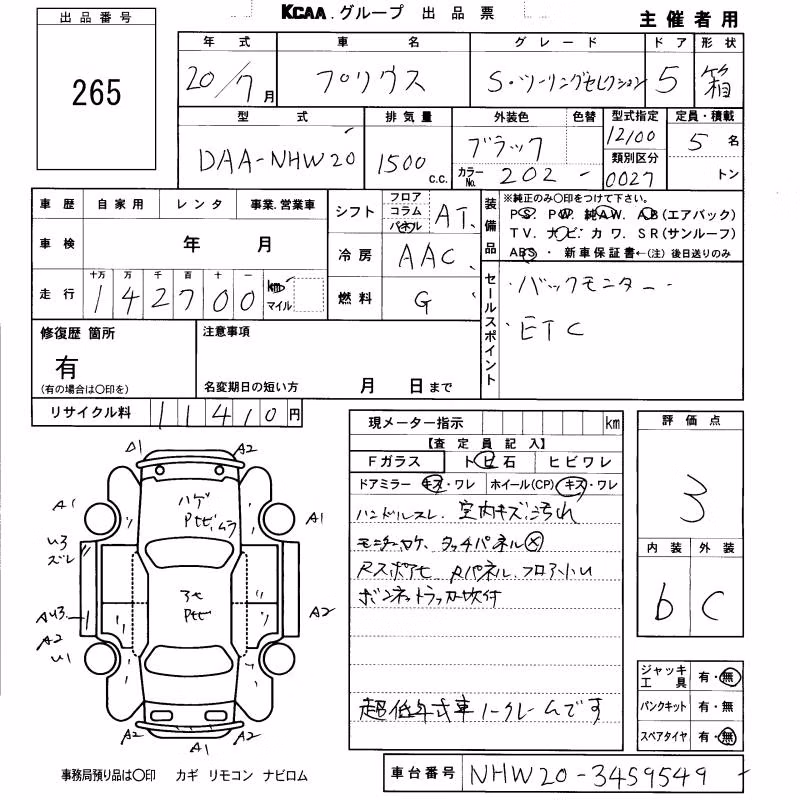 出品番号
265
KCAA.グループ 出品票
主催者用
年式 車名 グレード ドア 形状
20/7月 プリウス S・ツーリングセレクション 5 箱
型式 排気量 外装色 色替 型式指定 定員・積載
DAA-NHW20 1500c.c. ブラック 12100 5名
カラーNo. 202 - 類別区分 0027 トン
車歴 自家用 レンタ 事業.営業車
車検 年 月
走行 十万 万 千 百 十 一
142700 km マイル
シフト フロア コラム パネル AT
冷房 AAC
燃料 G
装備品
※純正のみ○印をつけて下さい。
PS. PW. 純AW. AB(エアバック)
TV. ナビ. カワ. SR(サンルーフ)
ABS・新車保証書←(注)後日送りのみ
セールスポイント
・バックモニター・
・ETC
修復歴 箇所
有
(有の場合は○印を)
注意事項
名変期日の短い方 月 日まで
リサイクル料 11410円
現メーター指示 km
【査定員記入】
Fガラス トビ石 ヒビワレ
ドアミラー キズ・ワレ ホイール(CP) キズ・ワレ
ハンドルスレ. 室内キズ汚れ
タッチパネル
ボンネットラッカ吹付
超低年式車ノークレームです
評価点
3
内装 外装
b C
ジャッキ工具 有・無
パンクキット 有・無
スペアタイヤ 有・無
車台番号 NHW20-3459549
A1 A2
ハゲ
A1 A1
U3
ズレ
A2 A2
U1
A2 A1 A2
事務局預り品は○印 カギ リモコン ナビロム